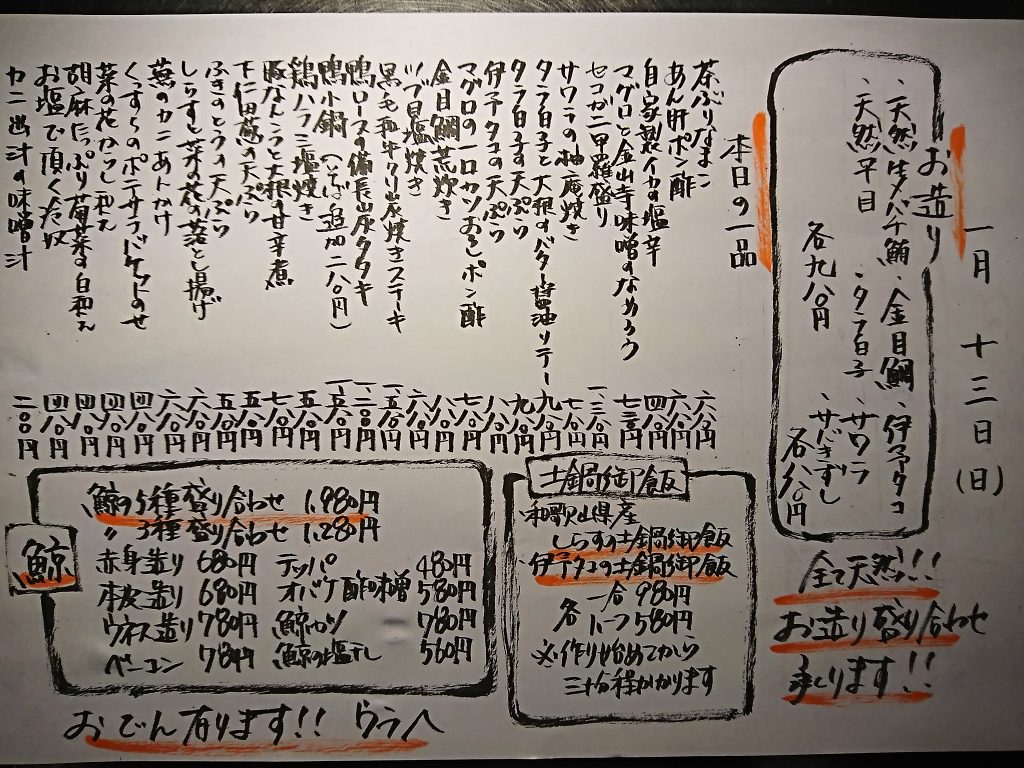 一月十三日(日)
お造り
・天然生メバチ鮪 ・金目鯛 ・伊予タコ
・天然平目 ・タラ白子 ・サワラ
・サバきずし
各九八〇円
各八八〇円
全て天然!!
お造り盛り合わせ
承ります!!
本日の一品
茶ぶりなまこ 六八〇円
あん肝ポン酢 六八〇円
自家製イカの塩辛 四八〇円
マグロと金山寺味噌のなめろう 七三〇円
セコガニ甲羅盛り 一、三八〇円
サワラの柚庵焼き 七八〇円
タラ白子と大根のバター醤油ソテー 九八〇円
タラ白子の天ぷら 九八〇円
伊予タコの天ぷら 八八〇円
マグロの一口カツおろしポン酢 七八〇円
金目鯛荒炊き 八八〇円
ツブ貝塩焼き 六八〇円
黒毛和牛クリ炭焼きステーキ 一、五八〇円
鴨ロースの備長炭タタキ 一、二〇〇円
鴨小鍋(そば追加二八〇円) 一、五八〇円
鶏ハラミ塩焼き 五八〇円
豚なんこつと大根の甘辛煮 七八〇円
下仁田葱の天ぷら 五八〇円
ふきのとうの天ぷら 五八〇円
しらすと菜の花の落とし揚げ 六八〇円
蕪のカニあんかけ 六八〇円
くっすらのポテサラバケットのせ 四八〇円
菜の花からし和え 四八〇円
胡麻たっぷり菊菜の白和え 四八〇円
お塩で頂く冷奴 四八〇円
カニ出汁の味噌汁 二〇〇円
土鍋御飯
和歌山県産
しらすの土鍋御飯
伊予タコの土鍋御飯
各 一合 980円
ハーフ 580円
※作り始めてから
三十分程かかります
鯨
鯨の5種盛り合わせ 1,980円
〃 3種盛り合わせ 1,280円
赤身造り 680円 テッパ 480円
本皮造り 680円 オバケ酢味噌 580円
ウネス造り 780円 鯨カツ 780円
ベーコン 784円 鯨の塩干し 560円
おでん有ります!! ウラへ